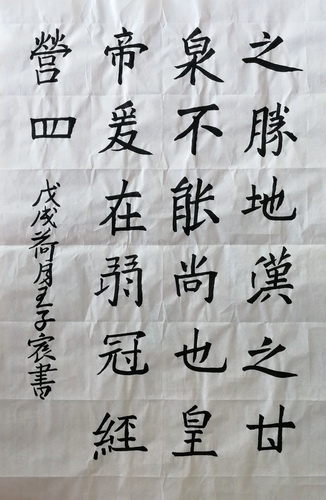 之勝地漢之甘
泉不能尚也皇
帝爰在弱冠經
營四
戊戌荷月王子宸書